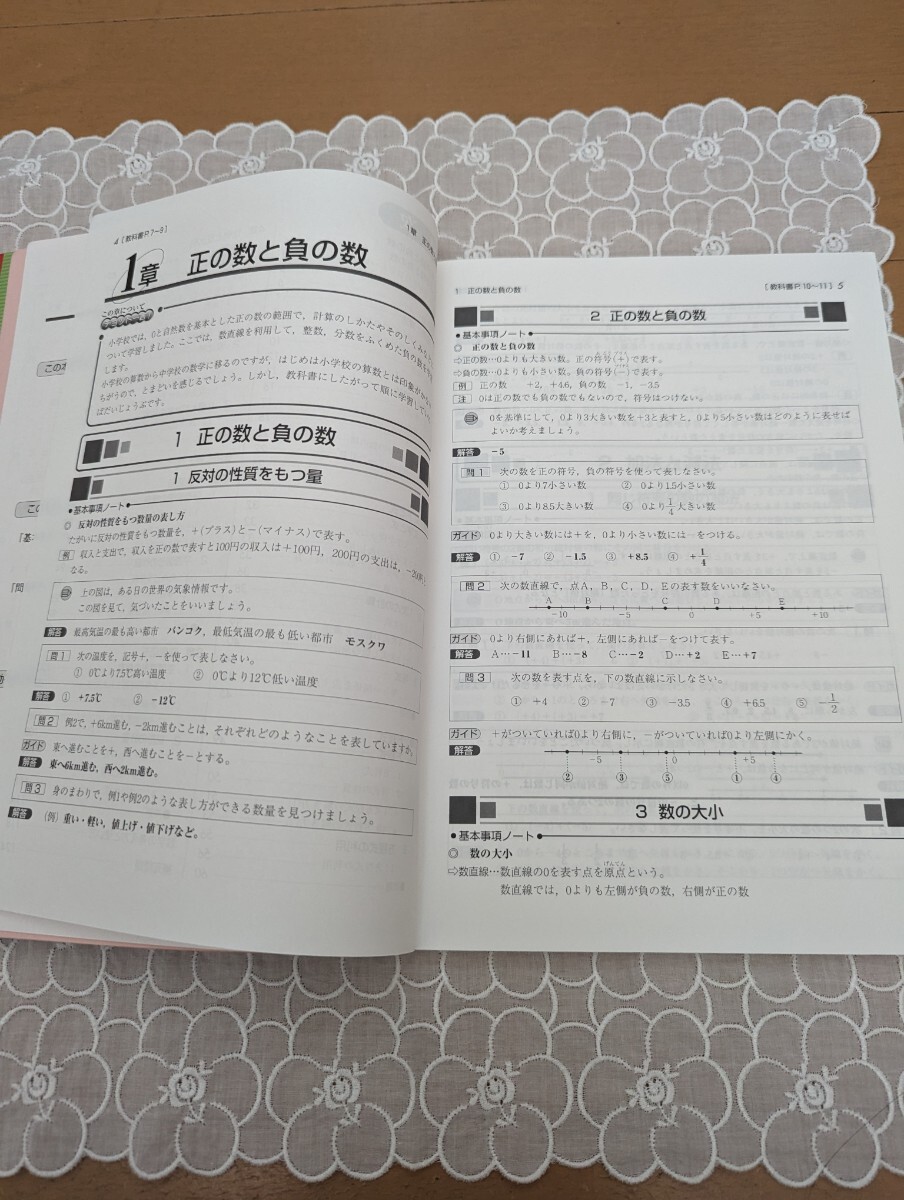 4 [教科書P.7~9]
1章 正の数
1章 正の数と負の数
この章について
小学校では，0と自然数を基本とした正の数の範囲で，計算のしかたやそのしくみなど
ついて学習しました。ここでは，数直線を利用して，整数，分数をふくめた負の数を
します。
小学校の算数から中学校の数学に移るのですが，はじめは小学校の算数とは印象が
ちがうので，とまどいを感じるでしょう。しかし，教科書にしたがって順に学習して
ばだいじょうぶです。
1 正の数と負の数
1 反対の性質をもつ量
●基本事項ノート●
◎ 反対の性質をもつ数量の表し方
たがいに反対の性質をもつ数量を，+(プラス)と−(マイナス)で表す。
例 収入と支出で，収入を正の数で表すと100円の収入は+100円，200円の支出は，−200円と
なる。
上の図は，ある日の世界の気象情報です。
この図を見て，気づいたことをいいましょう。
解答 最高気温の最も高い都市 バンコク，最低気温の最も低い都市 モスクワ
問1 次の温度を，記号+，−を使って表しなさい。
① 0℃より7.5℃高い温度 ② 0℃より12℃低い温度
解答 ① +7.5℃ ② −12℃
問2 例2で，+6km進む，−2km進むことは，それぞれどのようなことを表していますか。
ガイド 東へ進むことを+，西へ進むことを−とする。
解答 東へ6km進む，西へ2km進む。
問3 身のまわりで，例1や例2のような表し方ができる数量を見つけましょう。
解答 (例) 重い・軽い，値上げ・値下げなど。
1 正の数と負の数 [教科書P.10~11] 5
2 正の数と負の数
●基本事項ノート●
◎ 正の数と負の数
⇨正の数…0よりも大きい数。正の符号(+)で表す。
⇨負の数…0よりも小さい数。負の符号(−)で表す。
例 正の数 +2，+4.6，負の数 −1，−3.5
注 0は正の数でも負の数でもないので，符号はつけない。
0を基準にして，0より3大きい数を+3と表すと，0より5小さい数はどのように表せば
よいか考えましょう。
解答 −5
問1 次の数を正の符号，負の符号を使って表しなさい。
① 0より7小さい数 ② 0より1.5小さい数
③ 0より8.5大きい数 ④ 0より1/4大きい数
ガイド 0より大きい数には+を，0より小さい数には−をつける。
解答 ① −7 ② −1.5 ③ +8.5 ④ +1/4
問2 次の数直線で，点A，B，C，D，Eの表す数をいいなさい。
A B C D E
−10 −5 0 +5 +10
ガイド 0より右側にあれば+，左側にあれば−をつけて表す。
解答 A…−11 B…−8 C…−2 D…+2 E…+7
問3 次の数を表す点を，下の数直線に示しなさい。
① +4 ② −7 ③ −3.5 ④ +6.5 ⑤ −1/2
ガイド +がついていれば0より右側に，−がついていれば0より左側にかく。
解答 −5 0 +5
② ③ ⑤ ① ④
3 数の大小
●基本事項ノート●
◎ 数の大小
⇨数直線…数直線の0を表す点を原点という。
数直線では，0よりも左側が負の数，右側が正の数